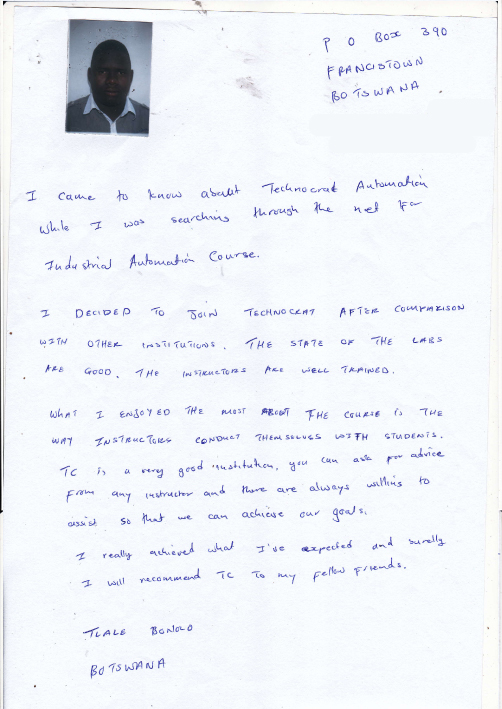 P O Box 390
FRANCISTOWN
BOTSWANA
I came to know about Technocrat Automation
while I was searching through the net for
Industrial Automation Course.
I DECIDED TO JOIN TECHNOCRAT AFTER COMPARISON
WITH OTHER INSTITUTIONS. THE STATE OF THE LABS
ARE GOOD. THE INSTRUCTORS ARE WELL TRAINED.
WHAT I ENJOYED THE MOST ABOUT THE COURSE IS THE
WAY INSTRUCTORS CONDUCT THEMSELVES WITH STUDENTS.
TC is a very good institution, you can ask for advice
from any instructor and there are always willing to
assist so that we can achieve our goals.
I really achieved what I've expected and surelly
I will recommend TC to my fellow friends.
TLALE BONOLO
BOTSWANA